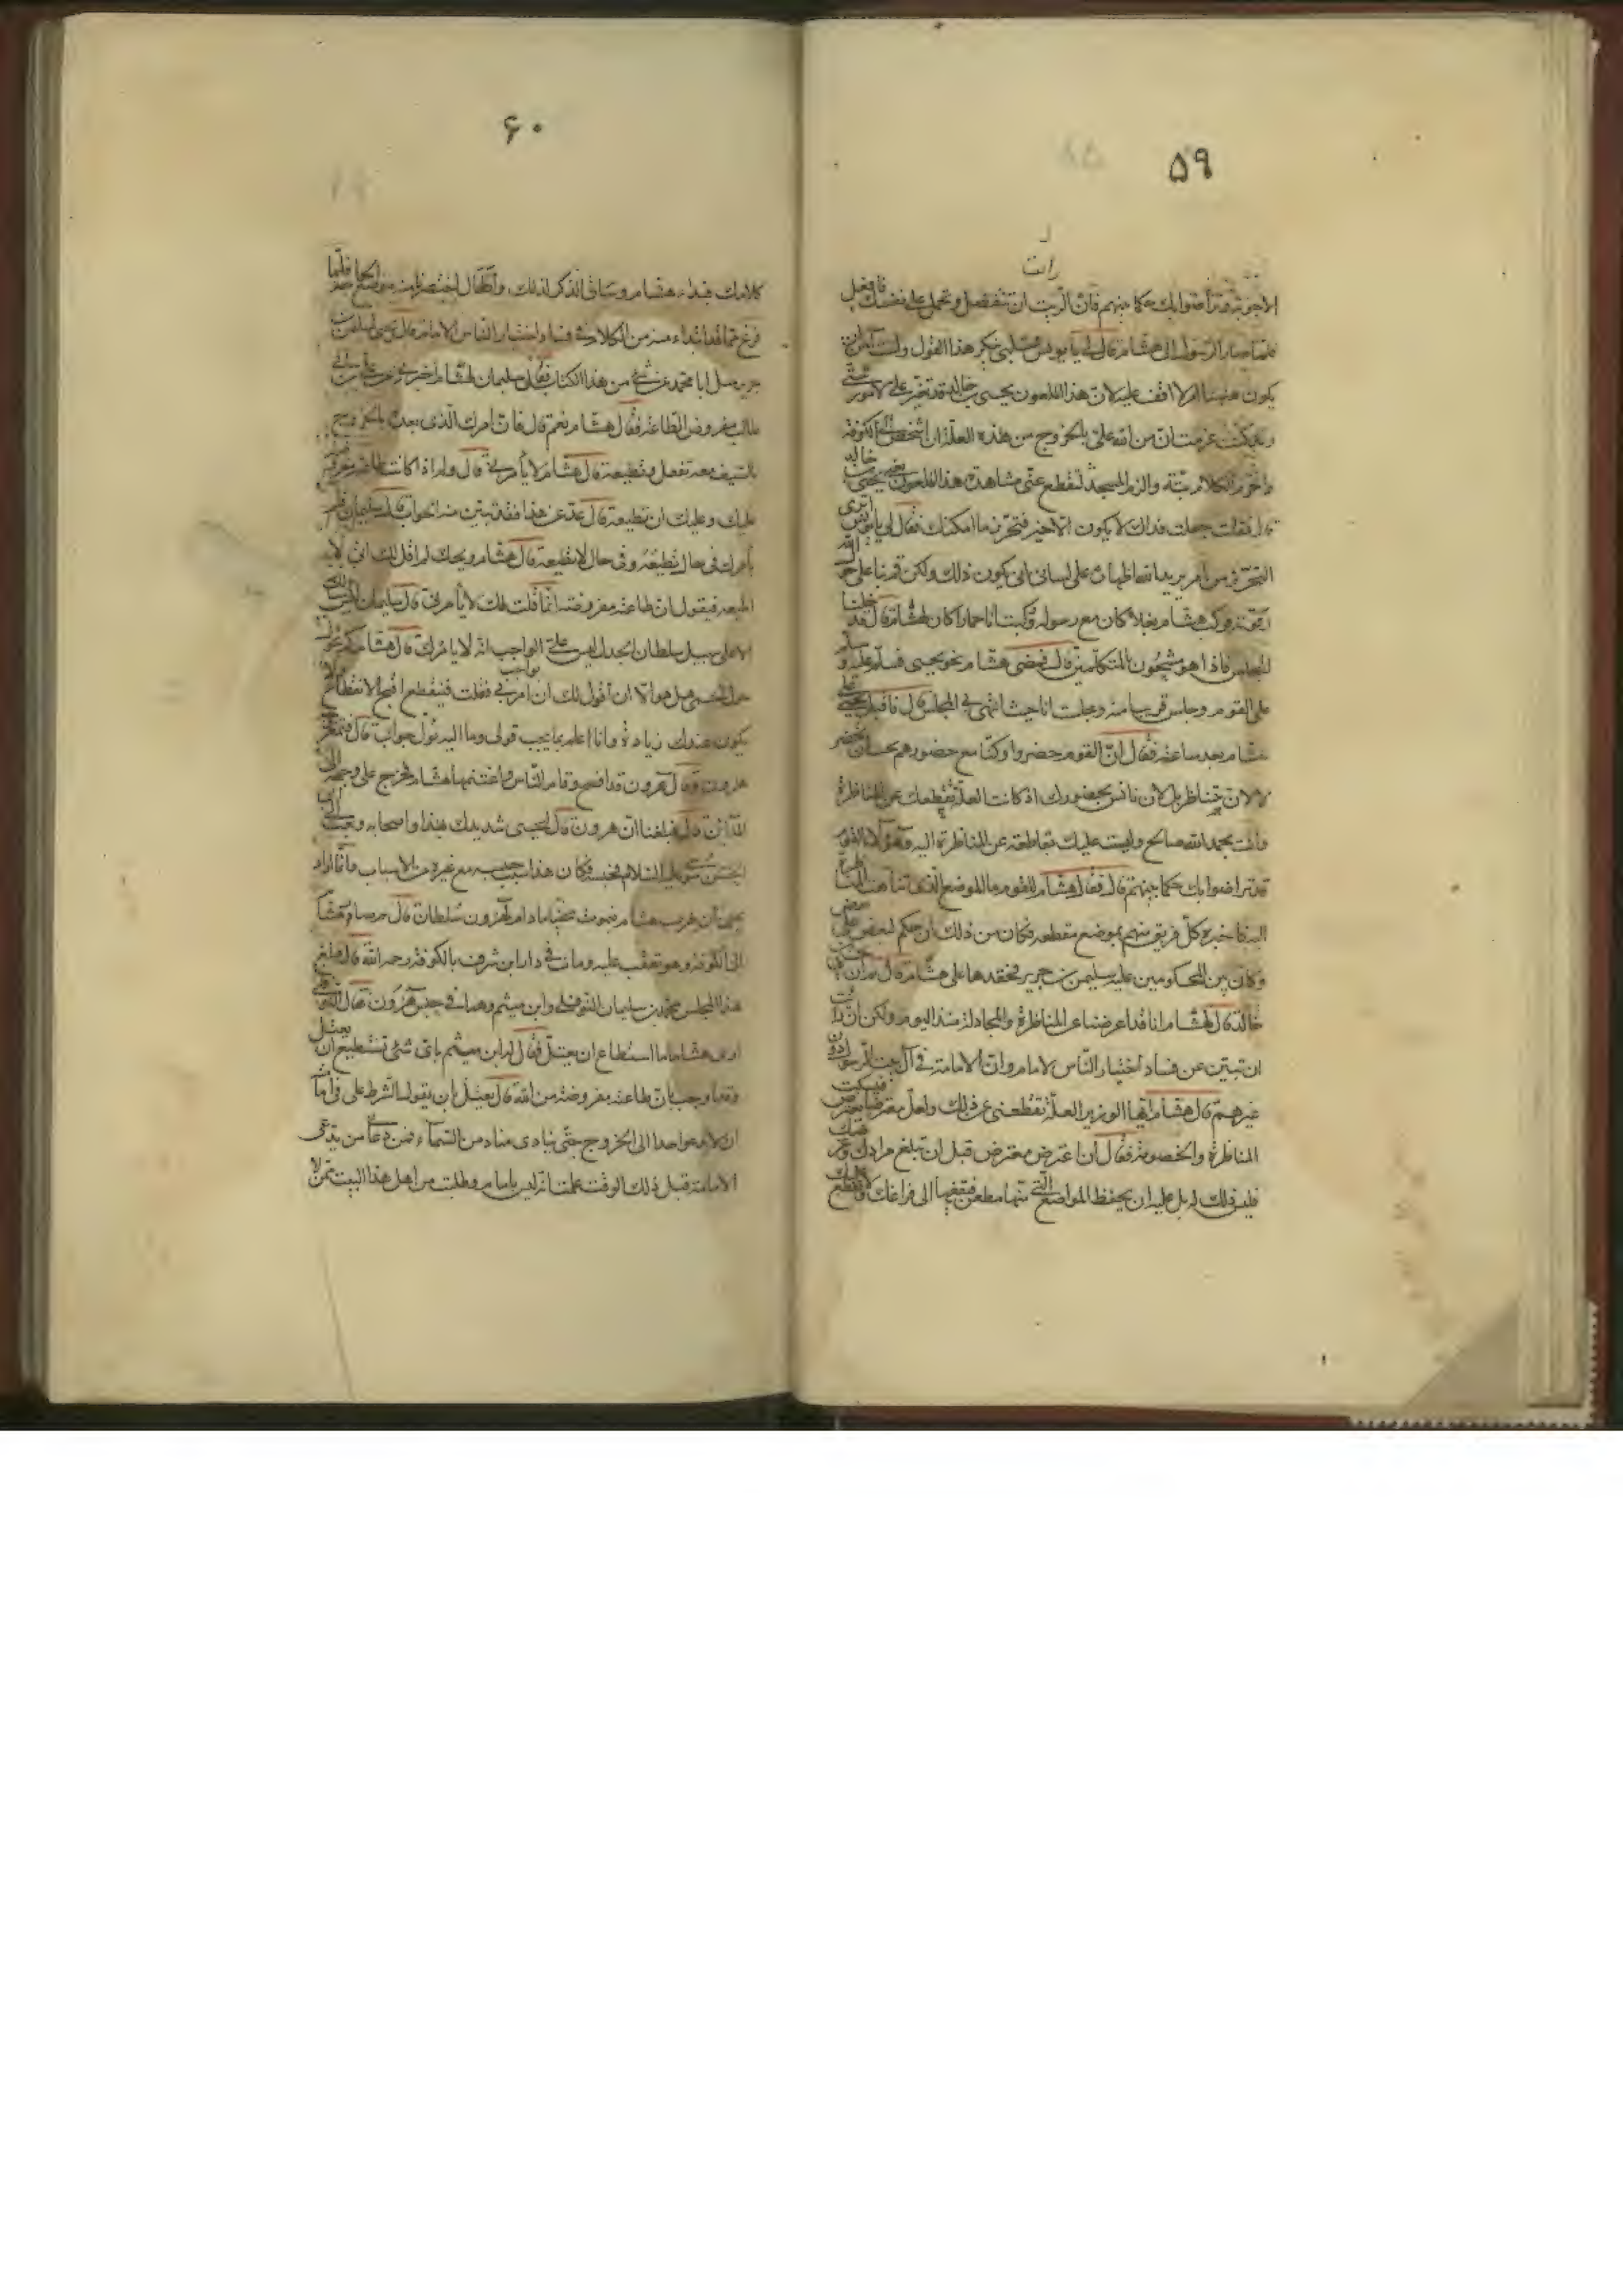 ۵۹
رات
الاجوبة وتراضوا بك حكما بينهم فان رايت ان تتفضل وتحمل على نفسك فافعل
فلما صار الرسول الى هشام قال لي يا يونس قلبي ينكر هذا القول ولست آمن ان
يكون هيهنا امر لا اقف عليه لان هذا الملعون يحيى بن خالد قد تغير علي لامور شتى
وقد كنت عزمت ان من الله علي بالخروج من هذه العلة ان اشخص الى الكوفة
واحرم الكلام بتة والزم المسجد ليقطع عني مشاهدة هذا الملعون يعني يحيى بن خالد
قال فقلت جعلت فداك لا يكون الا خير فتحرز ما امكنك فقال لي يا يونس اترى
التحرز من امر يريد الله اظهاره على لساني انى يكون ذلك ولكن قم بنا على حول الله
وقوته فركب هشام بغلا كان مع رسوله وركبت انا حمارا كان لهشام قال فدخلنا
المجلس فاذا هو مشحون بالمتكلمين قال فمضى هشام نحو يحيى فسلم عليه وسلم
على القوم وجلس قريبا منه وجلست انا حيث انتهى بي المجلس قال فاقبل يحيى على
هشام بعد ساعة فقال ان القوم حضروا وكنا مع حضورهم نحب ان تحضر
لا لان تناظر بل لان نانس بحضورك اذ كانت العلة تقطعك عن المناظرة
وانت بحمد الله صالح وليست علتك بقاطعة عن المناظرة اليه وهؤلاء القوم
قد تراضوا بك حكما بينهم قال فقال هشام للقوم ما الموضع الذي تناهت المناظرة
اليه فاخبره كل فريق منهم بموضع مقطعه فكان من ذلك ان حكم لبعض على بعض
وكان من المحكومين عليه سليمن بن جرير فحقدها على هشام قال ثم ان يحيى بن
خالد قال لهشام انا قد اعرضنا عن المناظرة والمجادلة منذ اليوم ولكن ان رايت
ان تبين عن فساد اختيار الناس لامام وان الامامة في آل بيت الرسول دون
غيرهم قال هشام ايها الوزير العلة تقطعني عن ذلك ولعل معترضا يعترض فيكتسب
المناظرة والخصومة فقال ان اعترض معترض قبل ان تبلغ مرادك وغرضك
فليس ذلك له بل عليه ان يحفظ المواضع التي منها مطعن فيقفها الى فراغك ولا يقطع عليك
۶۰
كلامك فبدا هشام وساق الذكر لذلك واطال اختصرنا منه موضع الحاجة فلما
فرغ مما قد ابتداء منه من الكلام في فساد اختيار الناس الامام قال يحيى لسليمن بن
جرير سل ابا محمد عن شئ من هذا الكتاب فقال سليمان لهشام اخبرني عن علي بن ابي
طالب مفروض الطاعة فقال هشام نعم قال فان امرك الذي بعده بالخروج
بالسيف معه تفعل وتطيعه قال هشام لا يأمرني قال ولم اذا كانت طاعته مفروضة
عليك وعليك ان تطيعه قال عد عن هذا فقد تبين منه الجواب قال سليمان فلم
يأمرك في حال تطيعه وفي حال لا تطيعه قال هشام ويحك لم اقل لك اني لا
اطيعه فيقول ان طاعته مفروضة انما قلت لك لا يأمرني قال سليمان ليس اسئلك
الا على سبيل سلطان الجدل ليس على الواجب انه لا يامرك قال هشام كم تحول
حول الحمى هل هو الا ان اقول لك ان امرني فعلت فينقطع اقبح الانقطاع ولا
يكون عندك زيادة وانا اعلم بما يجب قولي وما اليه يؤل جوابي قال فتمعر
هرون وقال هرون قد افصح وقام الناس واغتنمها هشام فخرج على وجهه الى
المدائن قال فبلغنا ان هرون قال ليحيى شد يدك بهذا واصحابه وبعث الى ابي
الحسن موسى عليه السلام فحبسه فكان هذا سبب حبسه مع غيره من الاسباب وانما اراد
يحيى ان يهرب هشام فيموت مختفيا ما دام لهرون سلطان قال ثم صار هشام
الى الكوفة وهو بعقب علته ومات في دار ابن شرف بالكوفة رحمه الله قال فبلغ
هذا المجلس محمد بن سليمان النوفلي وابن ميثم وهما في حبس هرون فقال النوفلي
ارى هشاما ما استطاع ان يعتل فقال ابن ميثم باي شئ تستطيع ان يعتل
وقد اوجب ان طاعته مفروضة من الله قال يعتل بان يقول الشرط علي في امامته
ان لا يدعوا احدا الى الخروج حتى ينادي مناد من السماء فمن دعاني ممن يدعي
الامامة قبل ذلك الوقت علمت انه ليس بامام وطلبت من اهل هذا البيت ممن لا